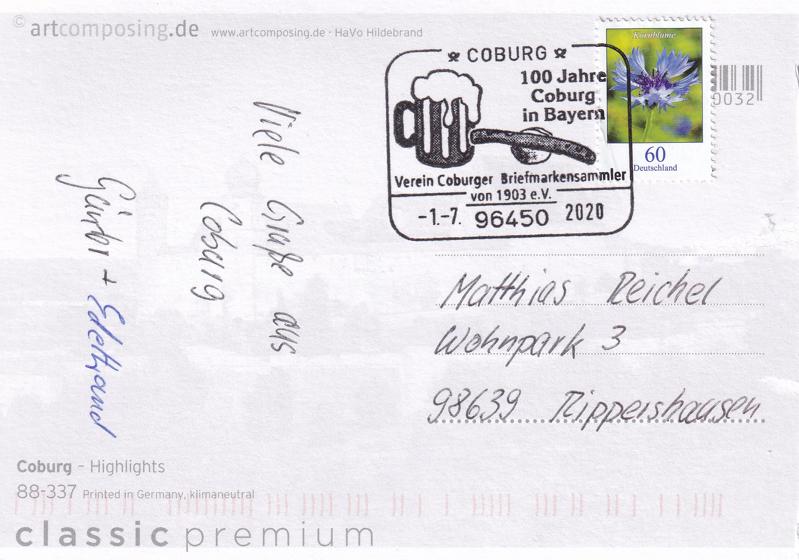 © artcomposing.de
www.artcomposing.de · HaVo Hildebrand
COBURG
100 Jahre
Coburg
in Bayern
Verein Coburger Briefmarkensammler
von 1903 e.V.
-1.-7. 96450 2020
Kornblume
60
Deutschland
0032
Viele Grüße aus
Coburg
Günter + Edeltraud
Matthias Reichel
Wohnpark 3
98639 Rippershausen
Coburg – Highlights
88-337 Printed in Germany, klimaneutral
classic premium